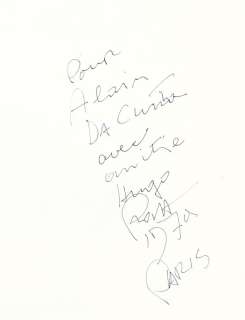 Pour
Alain
DA CUNHA
avec
amitié
Hugo
Pratt
PARIS